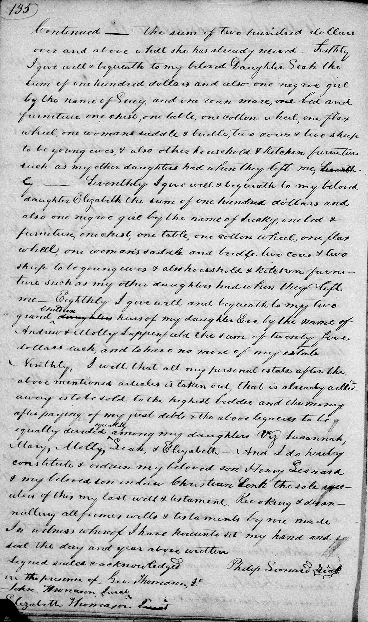 135)
Continued — the sum of two hundred dollars
over and above what she has already recd. Sixthly
I give will & bequeath to my beloved Daughter Leah the
sum of one hundred dollars and also one negroe girl
by the name of and one mare, one bed and
furniture one chest, one table, one cotton wheel, one flax
wheel one womans saddle & bridle, two cows & two sheep
to be young ewes & also other household & kitchen furniture
such as my other daughters had when they left me,
Seventhly I give will & bequeath to my beloved
daughter Elizabeth the sum of one hundred dollars and
also one negroe girl by the name of one bed &
furniture, one chest, one table, one cotton wheel, one flax
wheel one womans saddle and bridle two cows & two
sheep to be young ewes & also household & kitchen furni-
ture such as my other daughters had when they left
me — Eighthly I give will and bequeath to my two
grand children heirs of my daughter by the name of
Andrew & Molly the sum of twenty five
dollars each, and to have no more of my estate
Ninthly, I will that all my personal estate after the
above mentioned articles is taken out, that is already willed
away is to be sold to the highest bidder and the money
after paying of my just debts & the above legacies to be
equally divided equally among my daughters Viz Susannah,
Mary, Molly, Leah, & Elizabeth — And I do hereby
constitute & ordain my beloved son Henry Leonard
& my beloved son in law Christian the sole exe-
cutors of this my last will & testament. Revoking & disan-
nulling all former wills & testaments by me made
In witness whereof I have hereunto set my hand and
seal the day and year above written
Signed sealed & acknowledged Philip Leonard Seal
in the presence of Geo. Thomason, Jr
John Thomason Jurat
Elizabeth Thomason